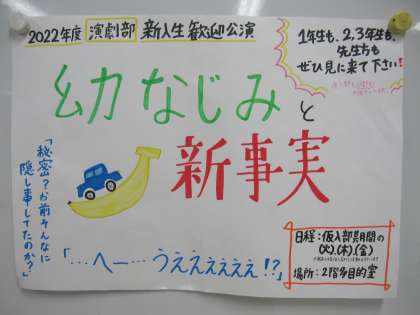 2022年度 演劇部 新入生歓迎公演
1年生も、2,3年生も、
先生方も
ぜひ見に来て下さい!
幼なじみと
新事実
「秘密?お前そんなに
隠し事してたのか?」
「…へー…うええええええ!?」
日程:仮入部期間の
(火)、(木)、(金)
場所:2階多目的室